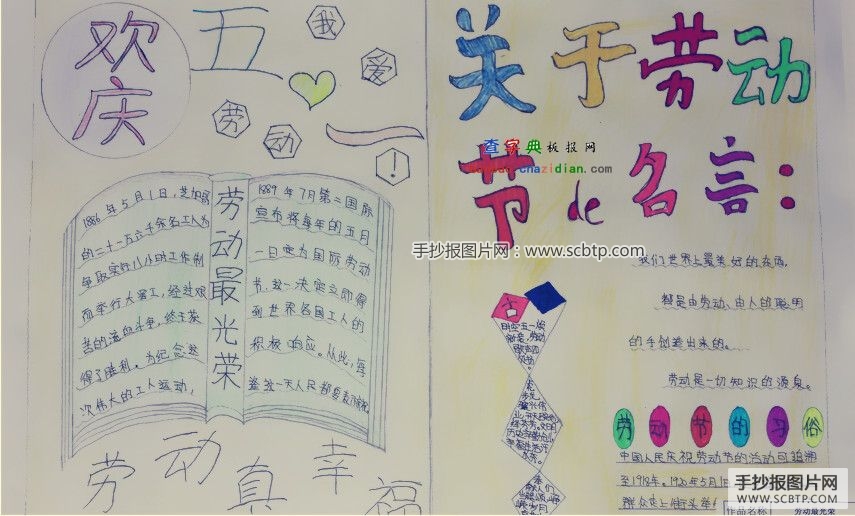 欢庆
五一
我爱劳动！
1886年5月1日，芝加哥
的二十一万六千余名工人为
争取实行八小时工作制
而举行大罢工，经过艰
苦的流血斗争，终于获
得了胜利。为纪念这
次伟大的工人运动，
劳动最光荣
1889年7月第二国际
宣布将每年的五月
一日定为国际劳动
节。这一决定立即得
到世界各国工人的
积极响应。从此，每
劳动真幸福
关于劳动
节de名言：
查字典板报网
chazidian.com
手抄报图片网：www.scbtp.com
我们世界上最美好的东西，
都是由劳动、由人的聪明
的手创造出来的。
劳动是一切知识的源泉。
古
劳动节的习俗
中国人民庆祝劳动节的活动可追溯
至1918年。1920年5月1日
群众走上街头举
手抄报图片网
WWW.SCBTP.COM
作品名称
劳动最光荣